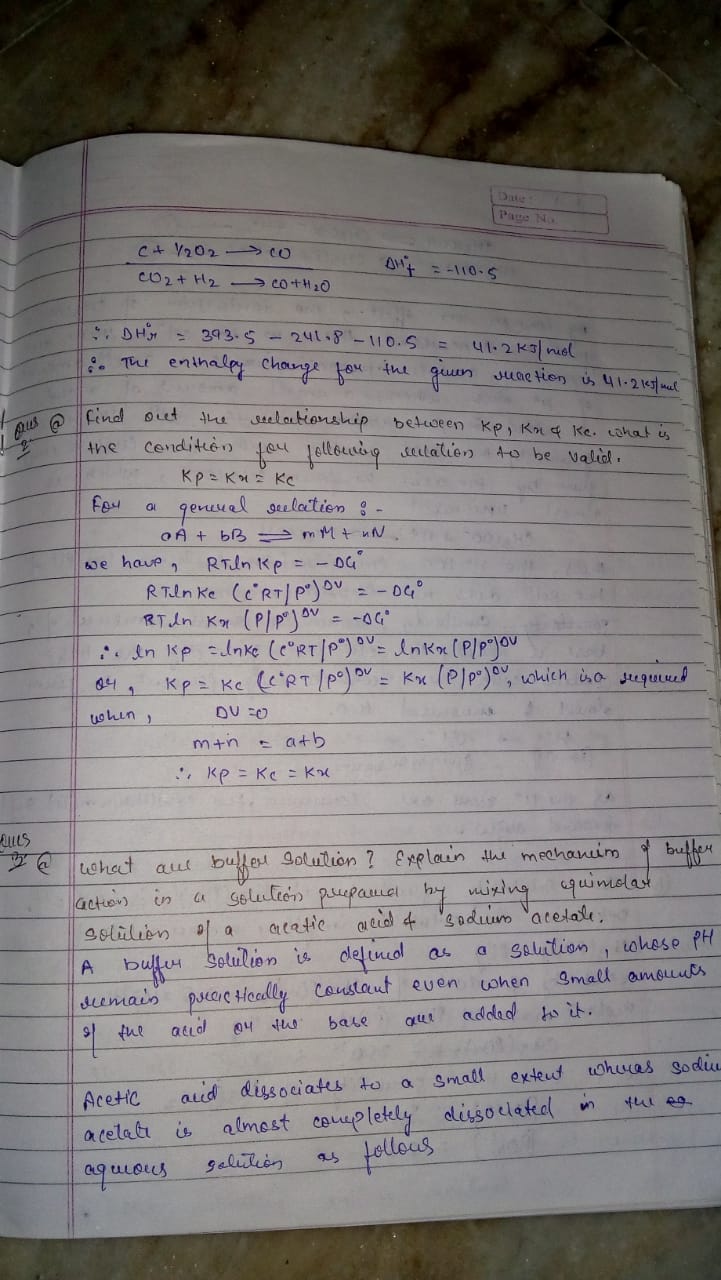 Date :
Page No.
C + 1/2O2 → CO ΔH°f = -110.5
CO2 + H2 → CO + H2O
∴ ΔH°r = 393.5 - 241.8 - 110.5 = 41.2 KJ/mol
∴ The enthalpy change for the given reaction is 41.2 KJ/mol
Ques @ Find out the relationship between Kp, Kx & Kc. what is
the condition for following relation to be valid.
Kp = Kx = Kc
For a general relation :-
aA + bB ⇌ mM + nN
we have, RTln Kp = -ΔG°
RTln Kc (c°RT/P°)^ΔV = -ΔG°
RTln Kx (P/P°)^ΔV = -ΔG°
∴ ln Kp = lnKc (c°RT/P°)^ΔV = lnKx (P/P°)^ΔV
or, Kp = Kc (c°RT/P°)^ΔV = Kx (P/P°)^ΔV, which is a required
when, ΔV = 0
m+n = a+b
∴ Kp = Kc = Kx
Ques
@ What are buffer solution? Explain the mechanism of buffer
action in a solution prepared by mixing equimolar
solution of a acetic acid & sodium acetate.
A buffer solution is defined as a solution, whose PH
remain practically constant even when small amounts
of the acid or the base are added to it.
Acetic acid dissociates to a small extent wheras sodiu
acetate is almost completely dissociated in the
aqueous solution as follows